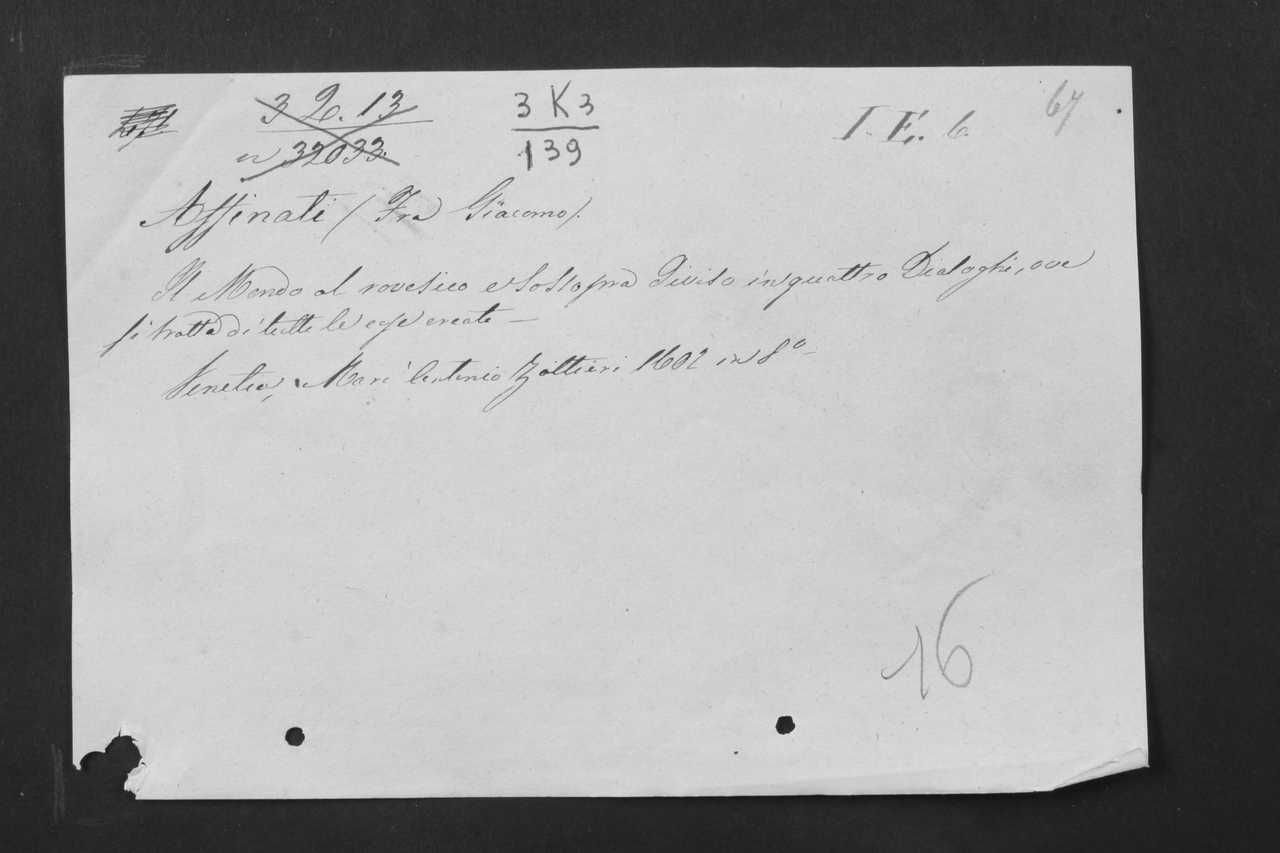 3 2. 13
32033
3 K 3
139
I. E. 6
67
Affinati (Fra Giacomo).
Il Mondo al rovesico e Sossopra Diviso in quattro Dialoghi, ove
si tratta di tutte le cose create —
Venetia, Marc' Antonio Zaltieri 1602 in 8º —
16